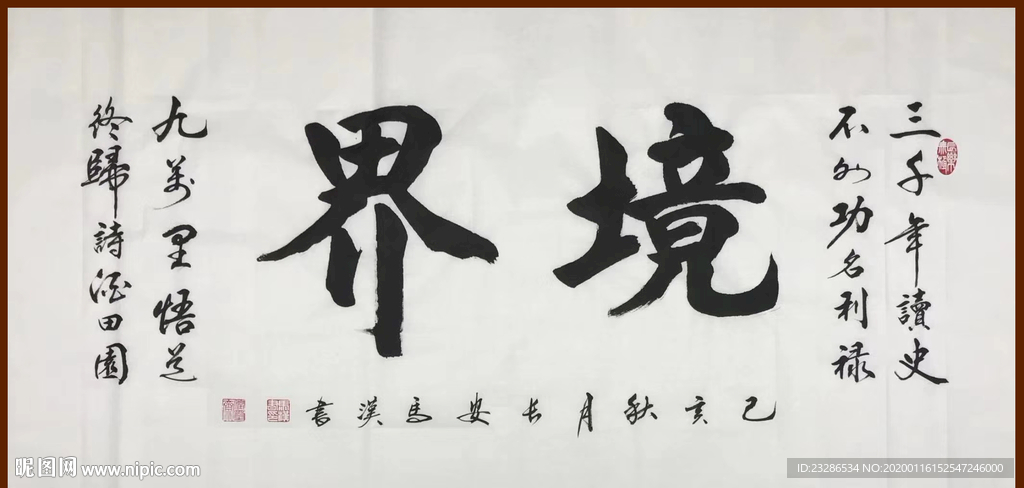 三千年讀史
不外功名利禄
境界
九萬里悟道
終歸詩酒田園
己亥秋月长安馬漢書
昵图网 www.nipic.com
ID:23286534 NO:20200116152547246000